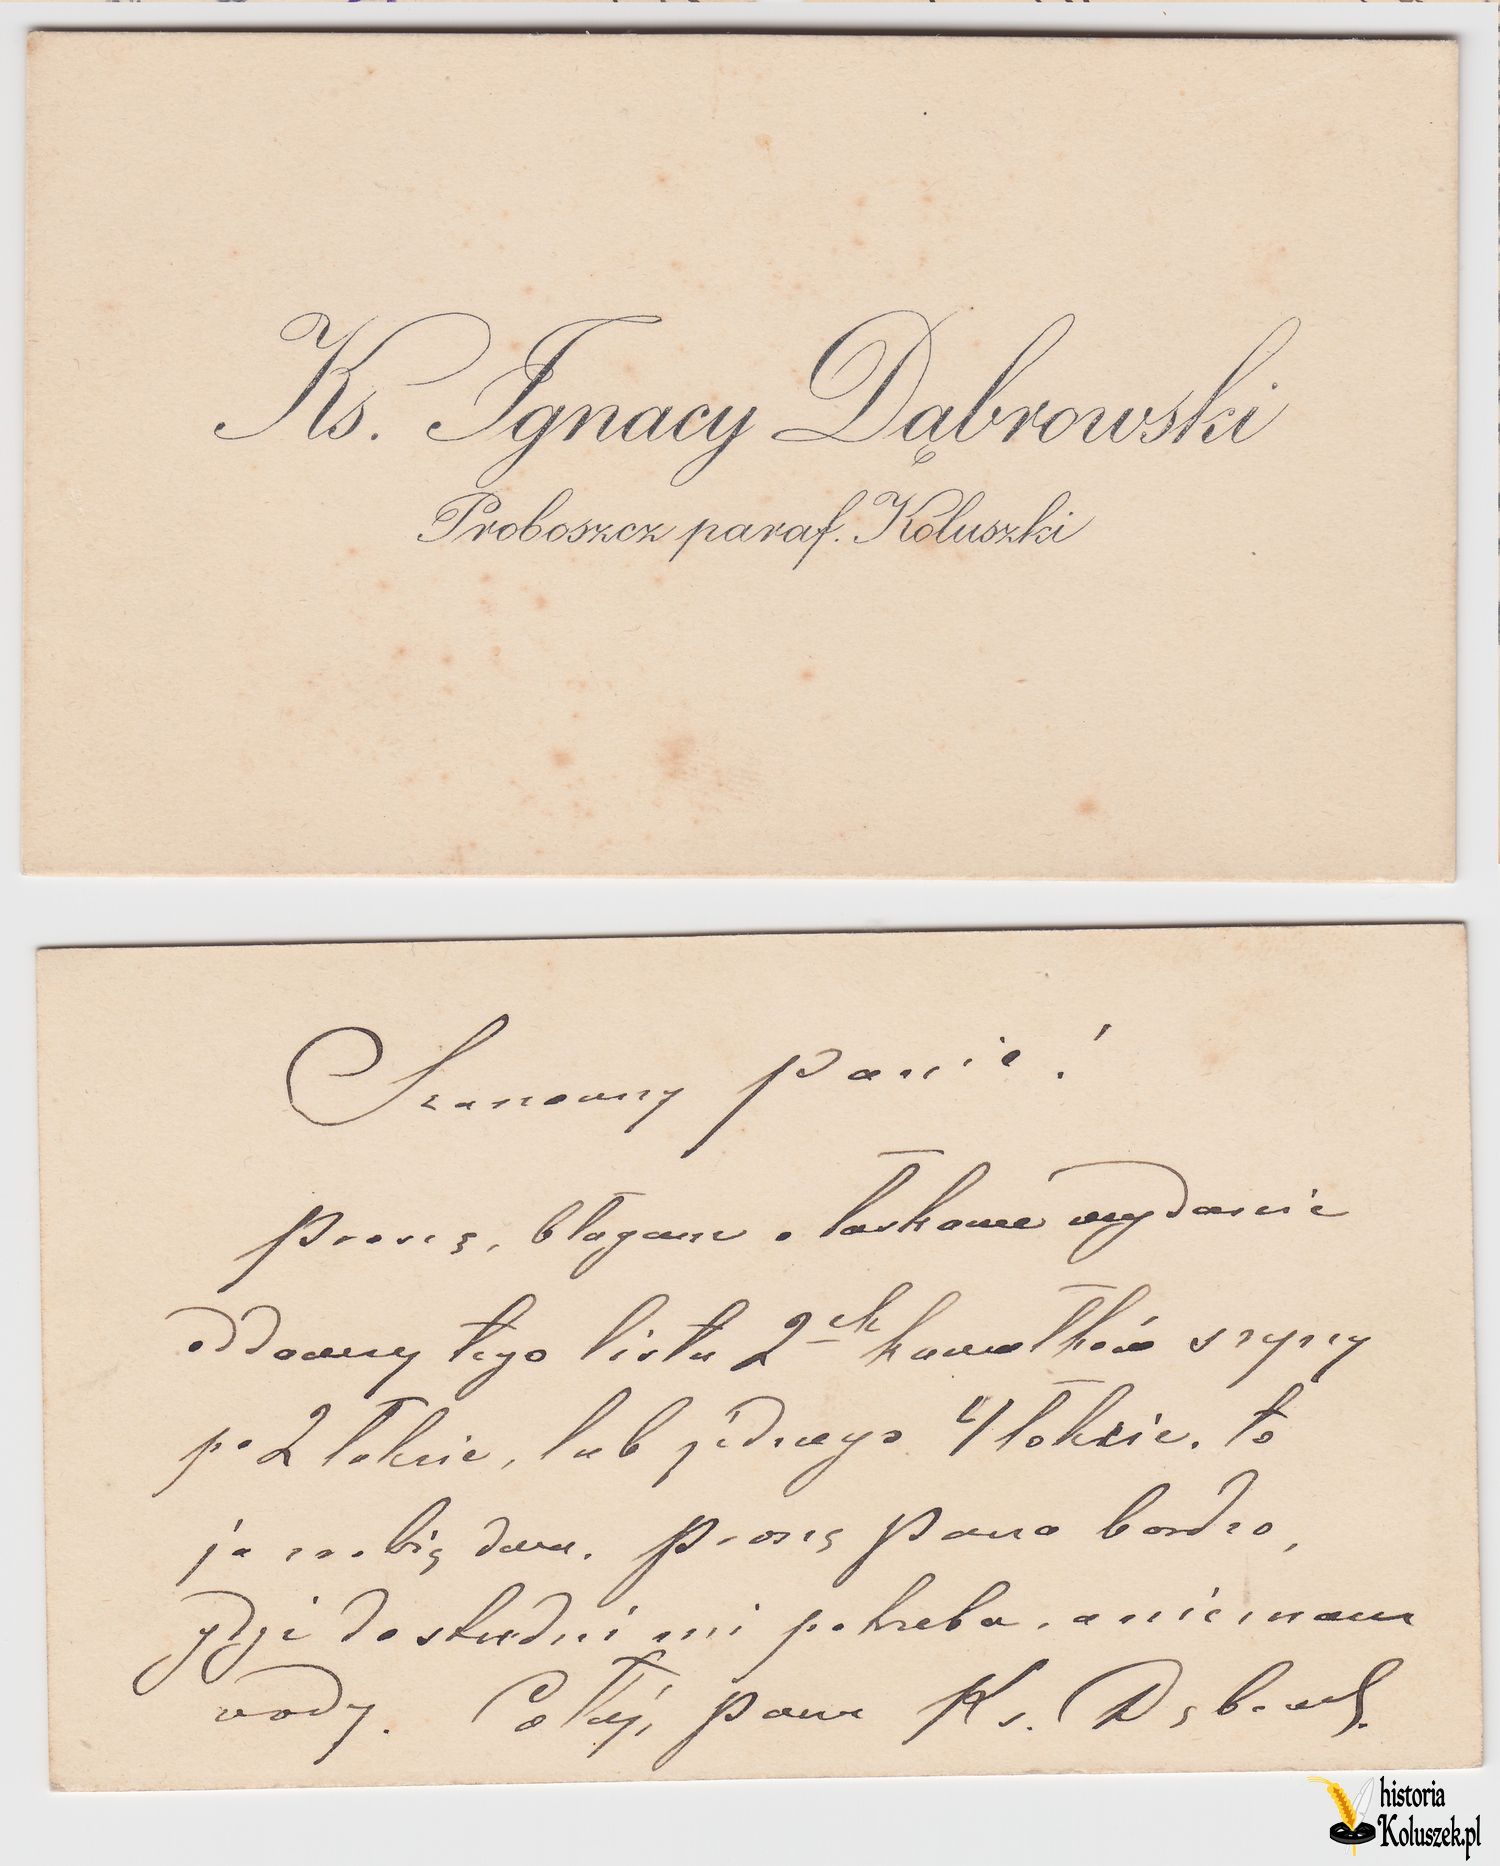 Ks. Ignacy Dąbrowski
Proboszcz paraf. Koluszki
Szanowny Panie!
Proszę, błagam o łaskawe wydanie
oddawcy tego listu 2ch kawałków szyny
po 2 łokcie, lub jednego 4 łokcie, to
ja robię dam. Proszę Pana bardzo,
gdyż do studni mi potrzeba, a nie mam
wody. Cały Pana Ks. Dąbrowski
historia
Koluszek.pl